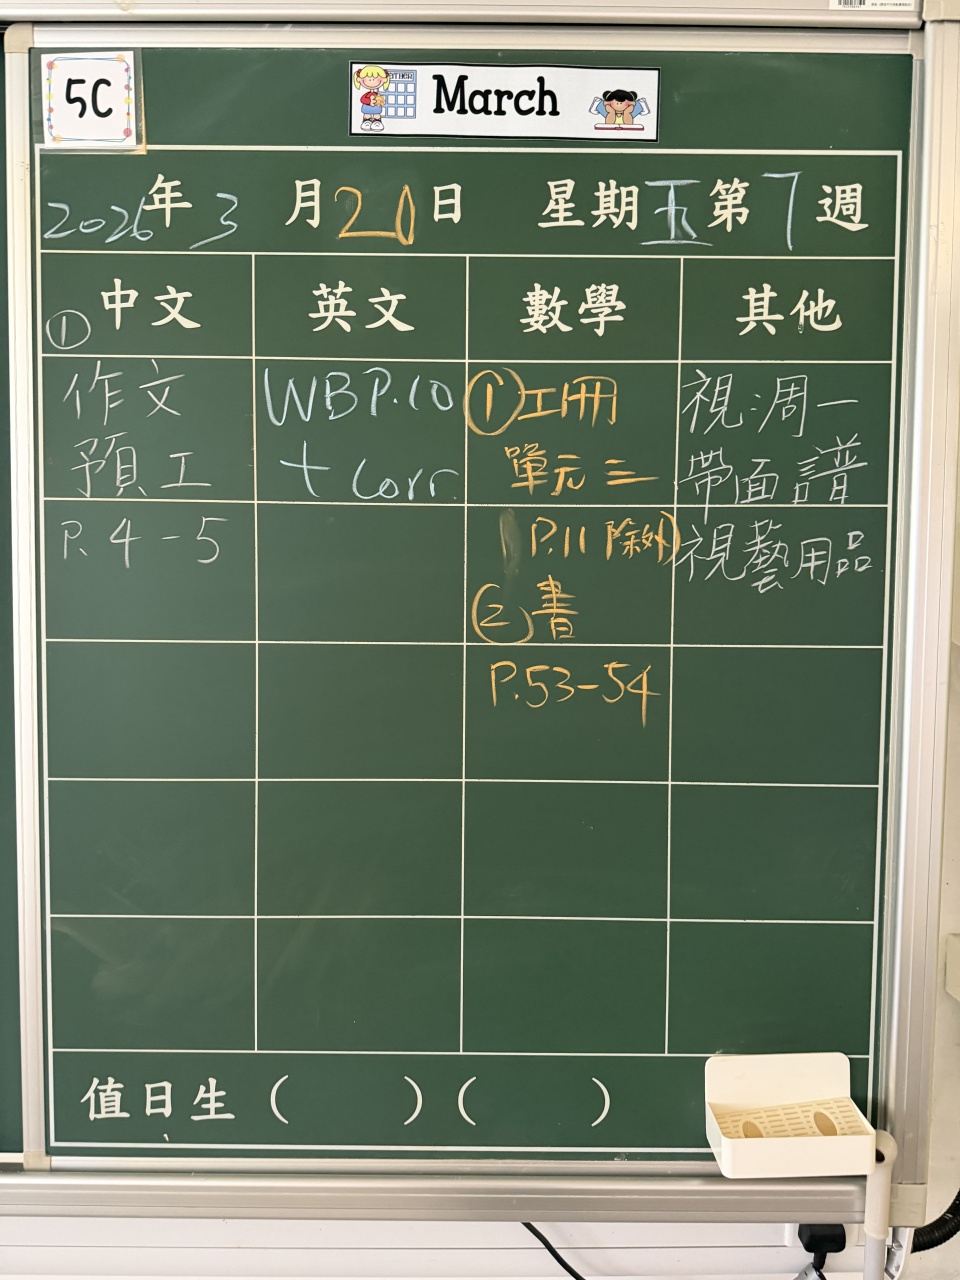 5C
March
2026年3月20日 星期五第7週
中文 英文 數學 其他
①
作文
預工
P.4-5
WB P.10
+ Corr.
①工冊
單元三
(P.11除外)
②書
P.53-54
視:周一
帶面譜
視藝用品
值日生 ( ) ( )